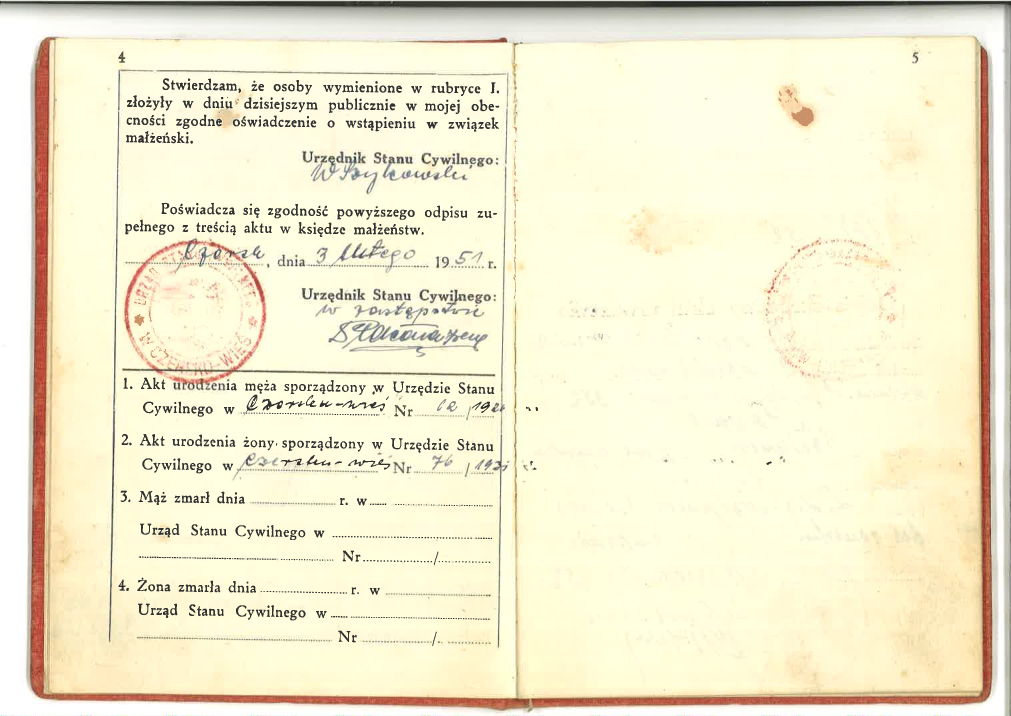 4
Stwierdzam, że osoby wymienione w rubryce I.
złożyły w dniu dzisiejszym publicznie w mojej obe-
cności zgodne oświadczenie o wstąpieniu w związek
małżeński.
Urzędnik Stanu Cywilnego:
Poświadcza się zgodność powyższego odpisu zu-
pełnego z treścią aktu w księdze małżeństw.
Czersk, dnia 3 lutego 1951 r.
Urzędnik Stanu Cywilnego:
w zastępstwie
URZĄD STANU CYWILNEGO
W CZERSKU-WIEŚ
1. Akt urodzenia męża sporządzony w Urzędzie Stanu
Cywilnego w Czersku-wieś Nr /
2. Akt urodzenia żony sporządzony w Urzędzie Stanu
Cywilnego w Czersku-wieś Nr 76 /
3. Mąż zmarł dnia r. w
Urząd Stanu Cywilnego w
Nr /
4. Żona zmarła dnia r. w
Urząd Stanu Cywilnego w
Nr /
5